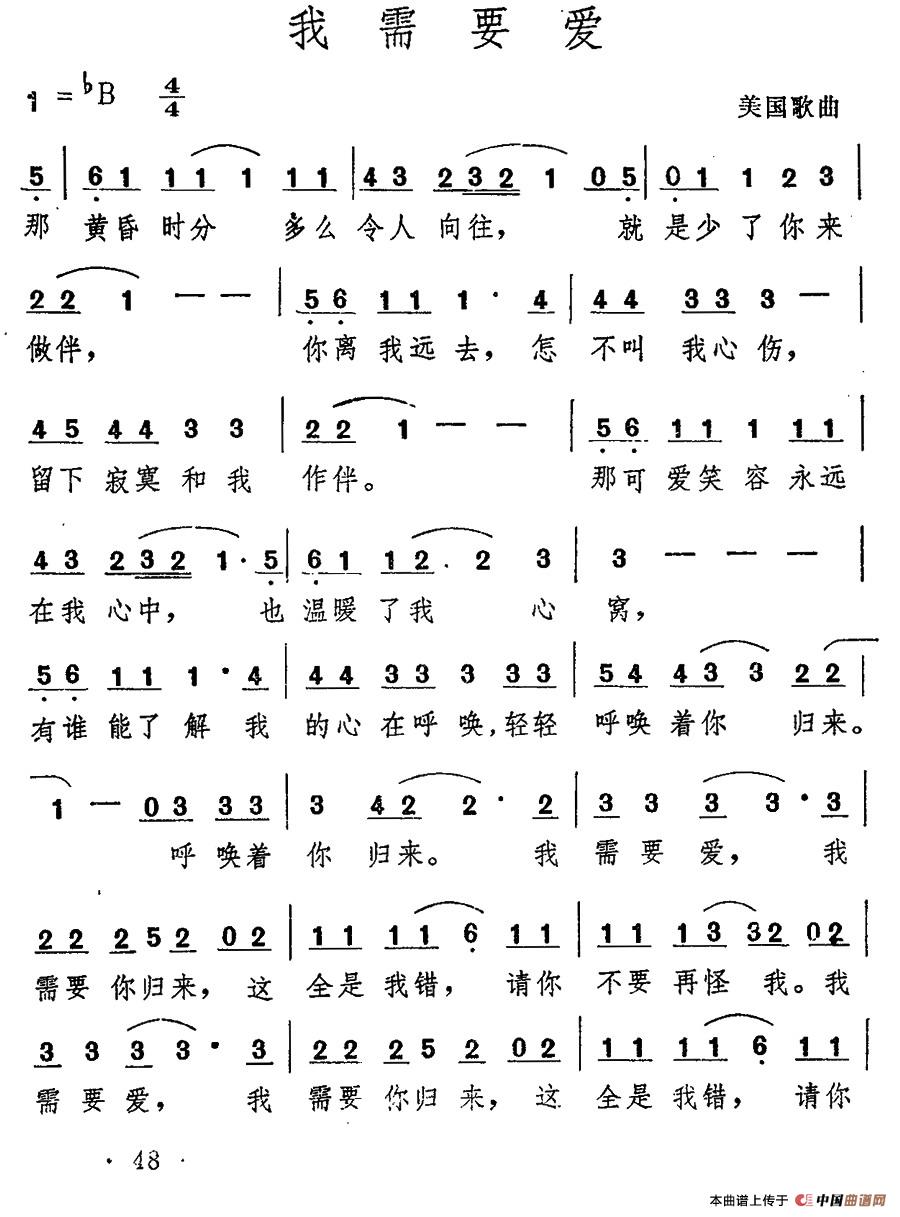 我需要爱
1 = ♭B 4/4 美国歌曲
5 | 6 1 1 1 1 1 1 | 4 3 2 3 2 1 0 5 | 0 1 1 2 3 |
那 黄昏 时分 多么 令人 向往， 就 是少 了 你 来
2 2 1 — — | 5 6 1 1 1 · 4 | 4 4 3 3 3 — |
做伴， 你离 我远 去， 怎 不叫 我心 伤，
4 5 4 4 3 3 | 2 2 1 — — | 5 6 1 1 1 1 1 |
留下 寂寞 和 我 作伴。 那可 爱笑 容 永远
4 3 2 3 2 1 · 5 | 6 1 1 2 · 2 3 | 3 — — — |
在我 心中， 也 温暖 了我 心 窝，
5 6 1 1 1 · 4 | 4 4 3 3 3 3 3 | 5 4 4 3 3 2 2 |
有谁 能了 解 我 的心 在呼 唤，轻轻 呼唤 着你 归来。
1 — 0 3 3 3 | 3 4 2 2 · 2 | 3 3 3 3 · 3 |
呼 唤着 你 归来。 我 需 要 爱， 我
2 2 2 5 2 0 2 | 1 1 1 1 6 1 1 | 1 1 1 3 3 2 0 2 |
需要 你归来， 这 全是 我错， 请你 不要 再怪 我。我
3 3 3 3 · 3 | 2 2 2 5 2 0 2 | 1 1 1 1 6 1 1 |
需 要 爱， 我 需要 你归 来， 这 全是 我错， 请你
· 48 ·
本曲谱上传于 中国曲谱网